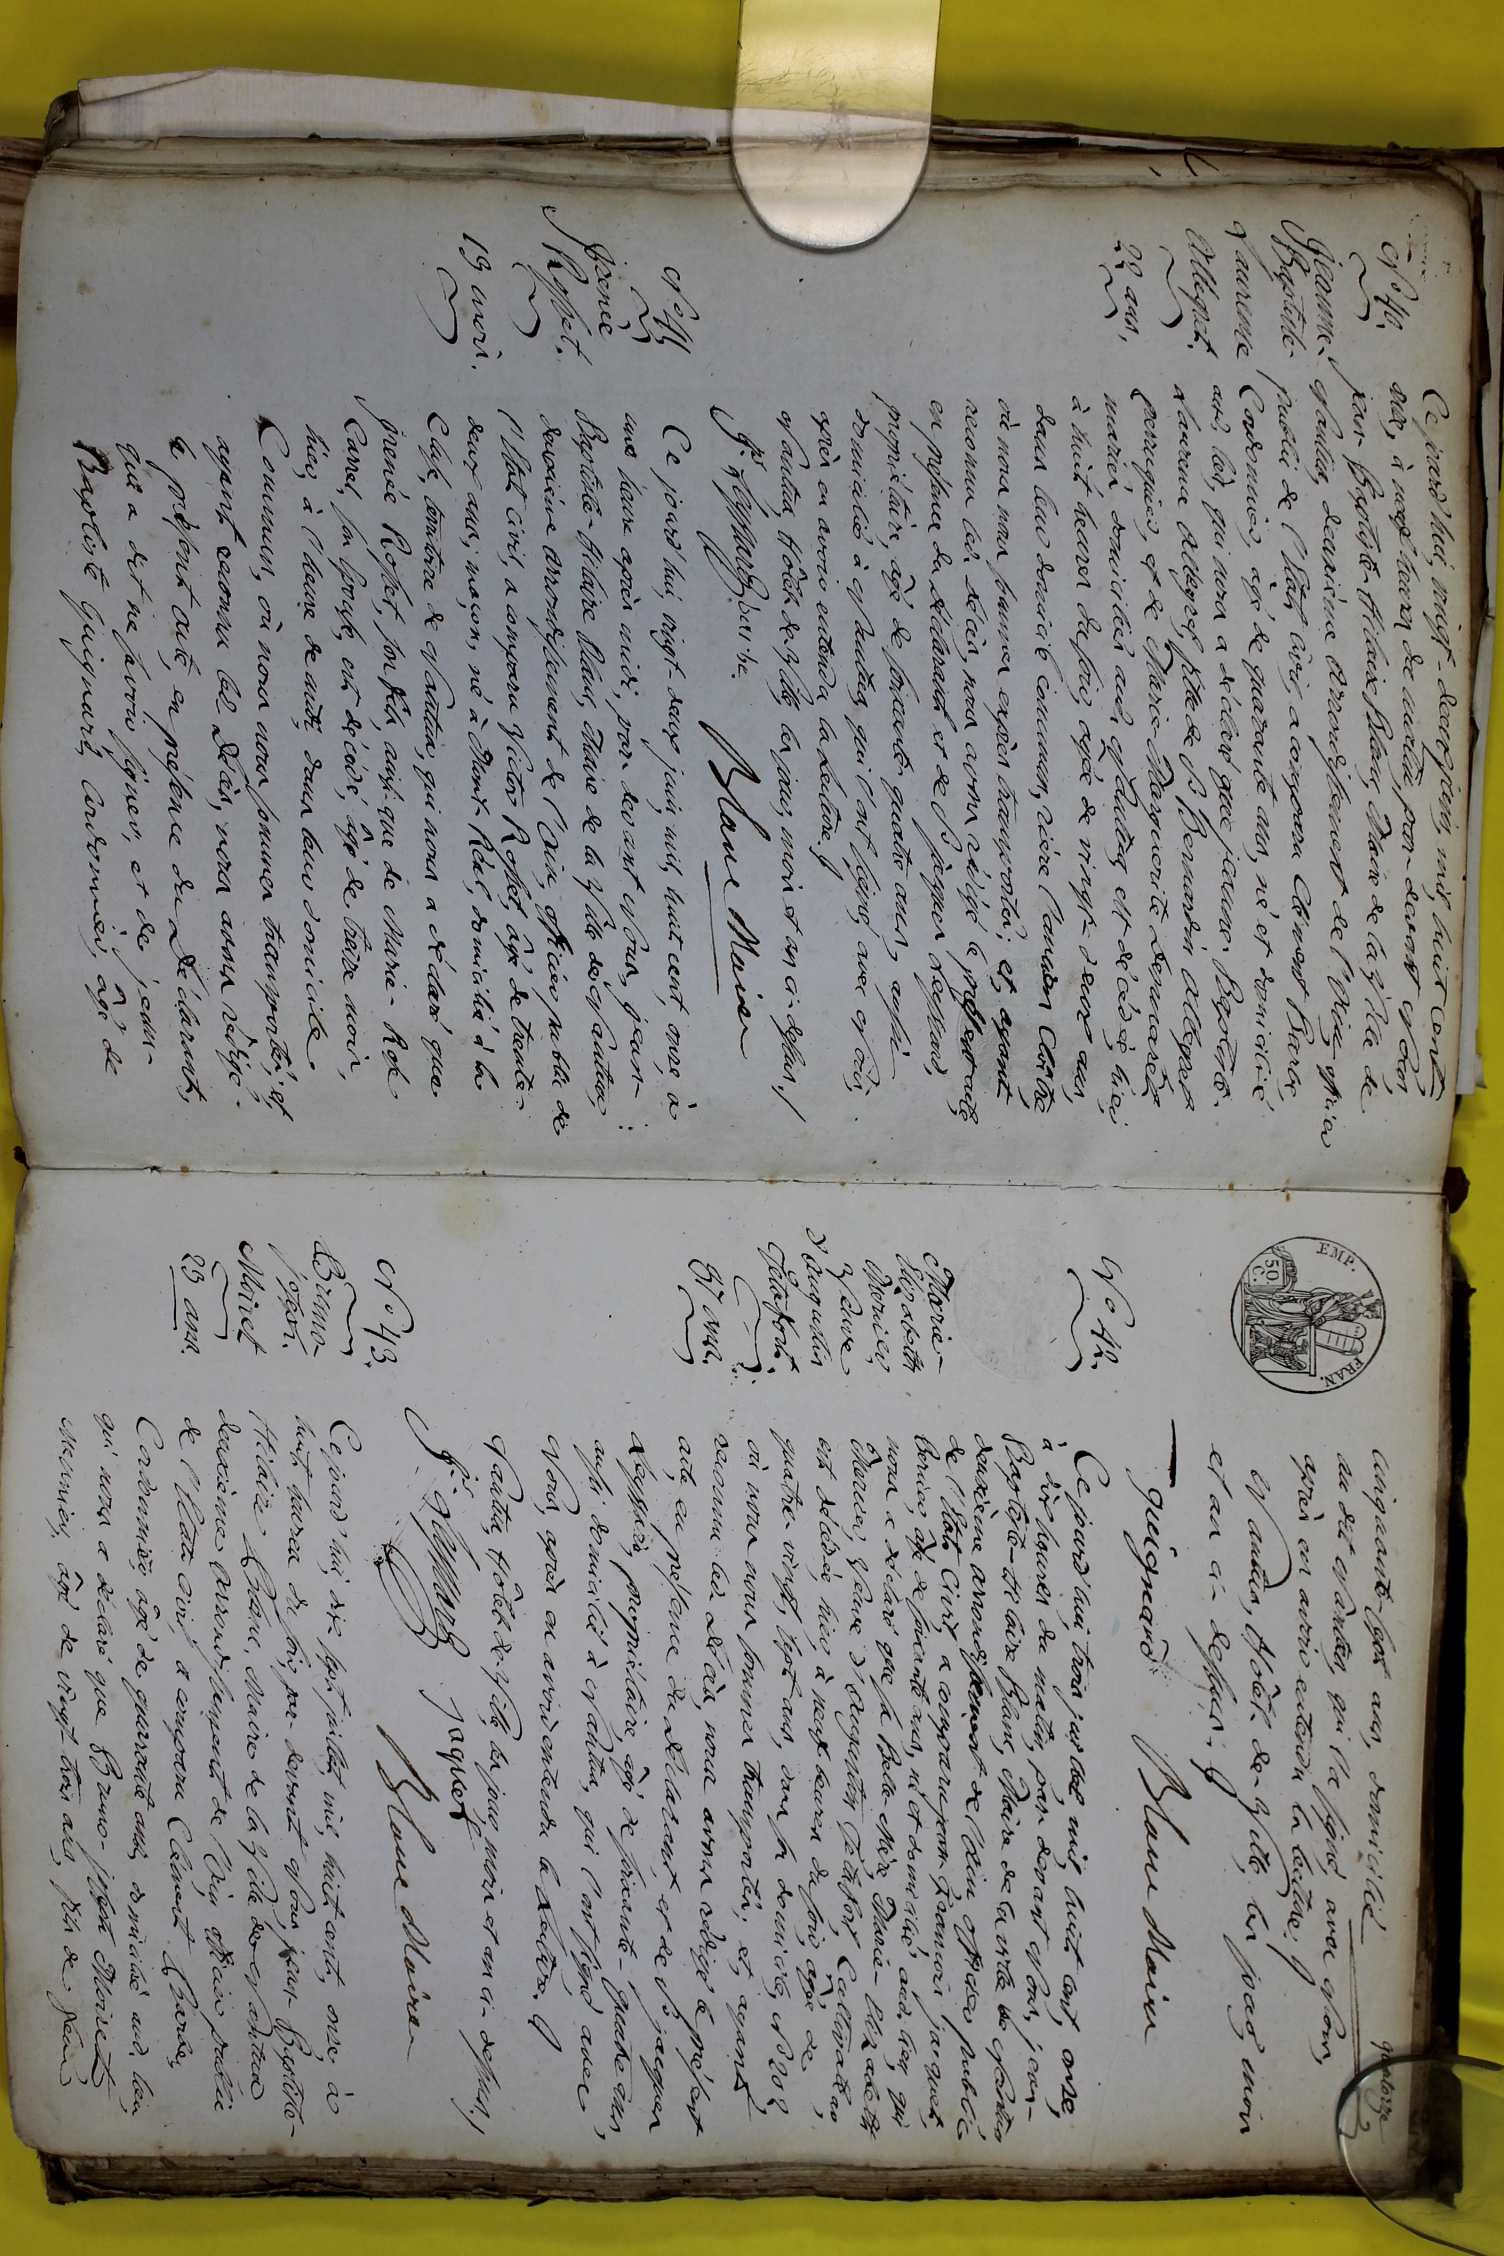 N.º 40.
Jeanne-
Baptiste-
Laurence
Allegret.
22 ans,
Ce jourd'hui, vingt-deux juin, mil, huit cent
onze, à neuf heures du matin, par-devant Nous,
Jean-Baptiste-Hilaire Blanc, Maire de la Ville de
Nantua, deuxième Arrondissement de l'Ain, officier
public de l'état civil, a comparu Clément Barbe,
Cordonnier, âgé de quarante ans, né et domicilié
aud. lieu, qui nous a déclaré que jeanne-Baptiste-
Laurence Allegret, fille de Bernardin Allegret
perruquier, et de Marie-Marguerite
mariés, domiciliés aud. Nantua, est décédée, hier
à huit heures du soir, âgée de vingt-deux ans,
dans leur domicile commun,
où nous nous sommes exprès transportés; et, ayant
reconnu led. décès, nous avons rédigé le présent acte,
en présence du déclarant et de Sr. jacques
propriétaire, âgé de soixante-quatre ans, aussi
domicilié à Nantua, qui l'ont signé, avec Nous,
après en avoir entendu la lecture.
Nantua, Hôtel-de-Ville, les jour, mois et an ci-dessus./
barbe.
Blanc Maire
N.º 41
Josephe
Rosset.
13 mois.
Ce jourd'hui, vingt-deux juin, mil, huit cent, onze, à
une heure après midi, par-devant Nous, jean-
Baptiste-Hilaire Blanc, Maire de la Ville de Nantua,
deuxième arrondissement de l'Ain, officier public de
l'état civil, a comparu Victor Rosset, âgé de trente-
deux ans, maçon, né à Mont-Réal, domicilié à la
Cluse, territoire de Nantua, qui nous a déclaré que
Rosset, son fils, ainsi que de Marie-
Carrel, son épouse, est décédé, âgé de treize mois,
hier, à l'heure de midi, dans leur domicile
Commun, où nous nous sommes transportés; et
ayant reconnu led. Décès, nous avons rédigé
le présent acte, en présence du Déclarant,
qui a dit ne savoir signer, et de jean-
Baptiste Guignard, cordonnier, âgé de
quatorze
EMP. FRAN.
50 C.
cinquante-sept ans, domicilié
au dit Nantua, qui l'a signé, avec Nous,
après en avoir entendu la lecture.
Nantua, Hôtel-de-Ville, les jour, mois
et an ci-dessus./
guignard
Blanc Maire
N.º 42.
Marie-
Elizabeth
Mermier,
Veuve
d'Augustin
87 ans.
Ce jourd'hui, trois juillet mil, huit cent, onze,
à dix heures du matin, par-devant Nous, jean-
Baptiste-Hilaire Blanc, Maire de la ville de Nantua
deuxième arrondissement de l'Ain officier public
de l'état civil, a comparu jean-françois jacquet,
âgé de soixante ans, né et domicilié aud. lieu, qui
nous a déclaré que sa Belle-Mère, Marie-Elizabeth
Veuve d'Augustin
est décédée, hier, à neuf heures du soir, âgée de
quatre-vingt, sept ans, dans son domicile, N.º 202
où nous nous sommes transportés; et, ayant
reconnu led. Décès, nous avons rédigé le présent
acte, en présence du déclarant, et de Sr. jacques
propriétaire, âgé de soixante-quatre ans,
aussi domicilié à Nantua, qui l'ont signé avec
Nous, après en avoir entendu la lecture.
Nantua, Hôtel-de-Ville, les jour, mois et an ci-dessus./
jaquet
Blanc Maire
N.º 43.
Bruno-
joseph
Moiret
23 ans.
Ce jourd'hui, dix-sept juillet, mil, huit cent, onze, à
huit heures du soir, par-devant Nous, jean-Baptiste-
Hilaire Blanc, Maire de la Ville de Nantua
deuxième Arrondissement de l'Ain, officier public
de l'état civil, a comparu Clément Barbe,
Cordonnier, âgé de quarante ans, domicilié aud. lieu
qui nous a déclaré que Bruno-joseph Moiret
âgé de vingt-trois ans, fils de feu